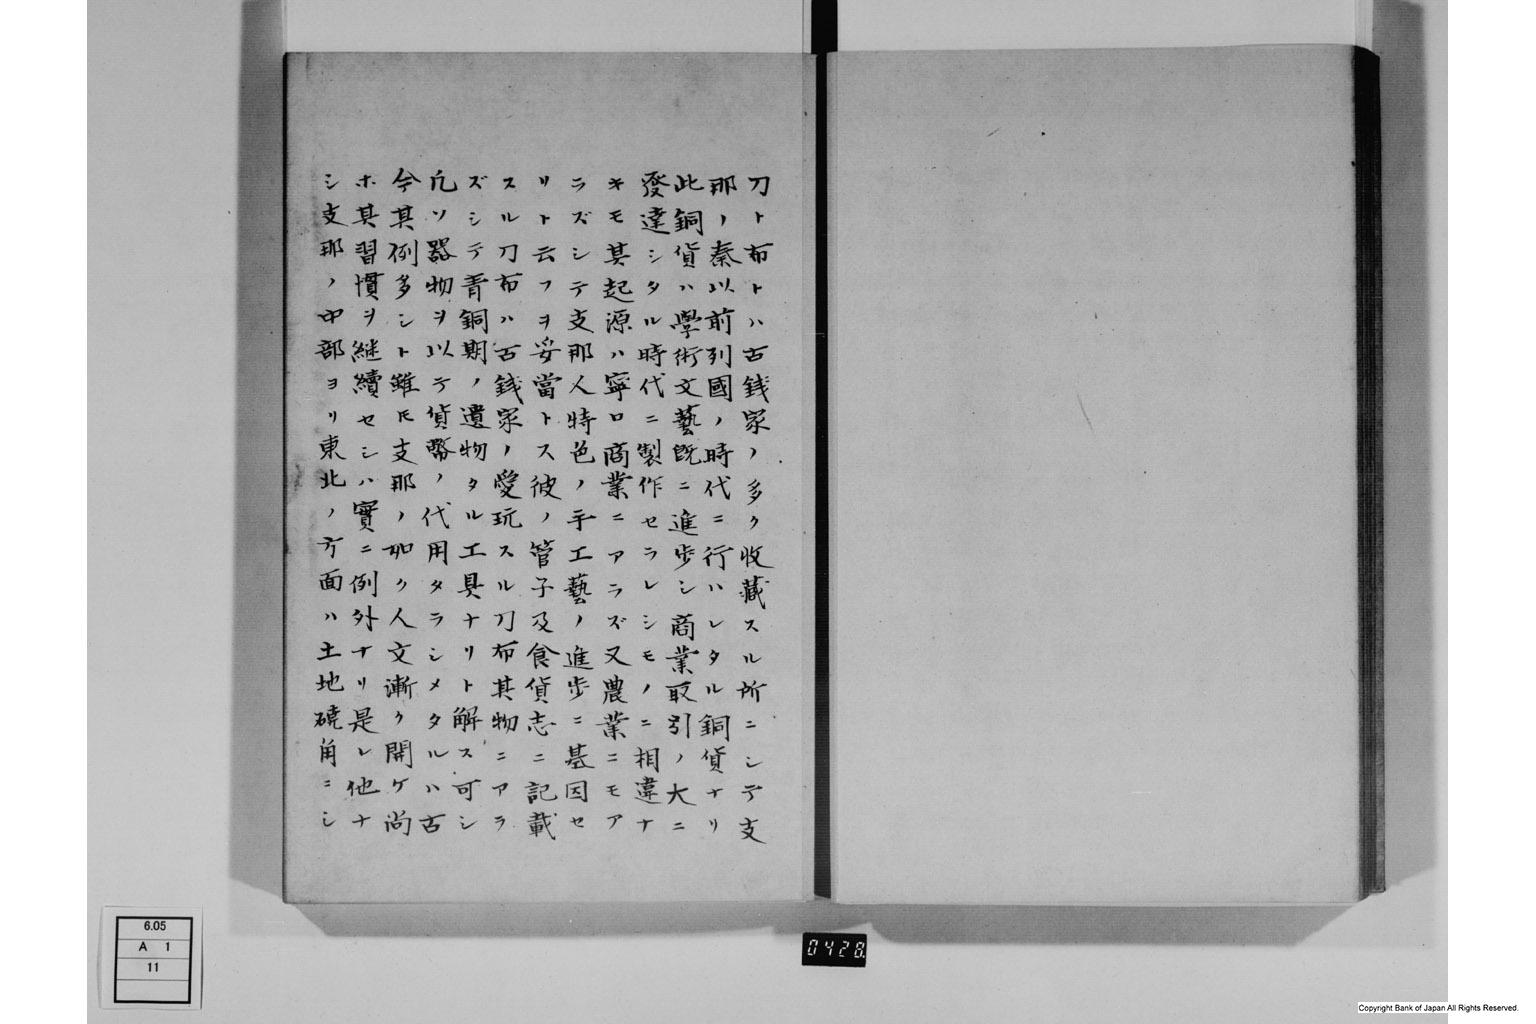 刀ト布トハ古銭家ノ多ク收藏スル所ニシテ支
那ノ秦以前列國ノ時代ニ行ハレタル銅貨ナリ
此銅貨ハ學術文藝既ニ進步シ商業取引ノ大ニ
發達シタル時代ニ製作セラレシモノニ相違ナ
キモ其起源ハ寧ロ商業ニアラズ又農業ニモア
ラズシテ支那人特色ノ手工藝ノ進步ニ基因セ
リト云フヲ妥當トス彼ノ管子及食貨志ニ記載
スル刀布ハ古銭家ノ愛玩スル刀布其物ニアラ
ズシテ青銅期ノ遺物タル工具ナリト解ス可シ
凡ソ器物ヲ以テ貨幣ノ代用タラシメタルハ古
今其例多シト雖𪜈支那ノ如ク人文漸ク開ケ尚
ホ其習慣ヲ継續セシハ實ニ例外ナリ是レ他ナ
シ支那ノ中部ヨリ東北ノ方面ハ土地磽角ニシ
6.05
A 1
11
0428
Copyright Bank of Japan All Rights Reserved.